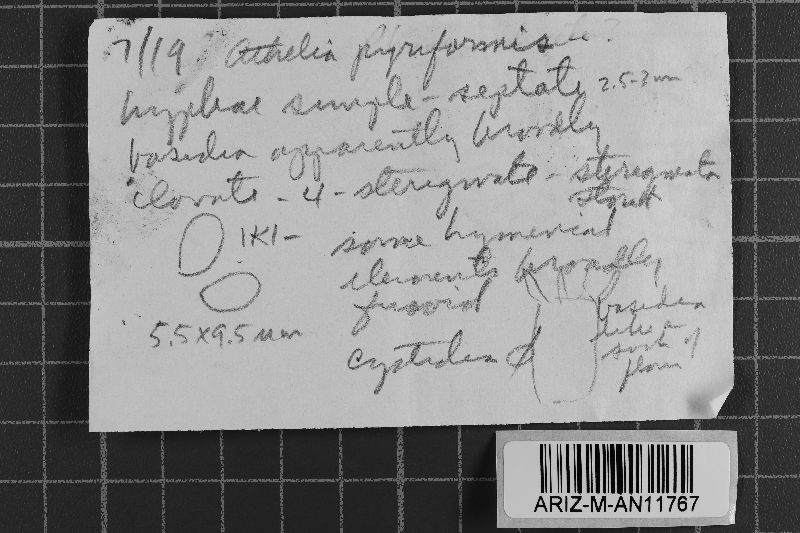 7/19 Athelia pyriformis
hyphae simple-septate 2.5-3 um
basidia apparently broadly
clavate - 4-sterigmate - sterigmata
stout
IKI- some hymenial
elements broadly
fusoid
5.5x9.5 um
cystidia ø
basidia
like
sort of
ARIZ-M-AN11767